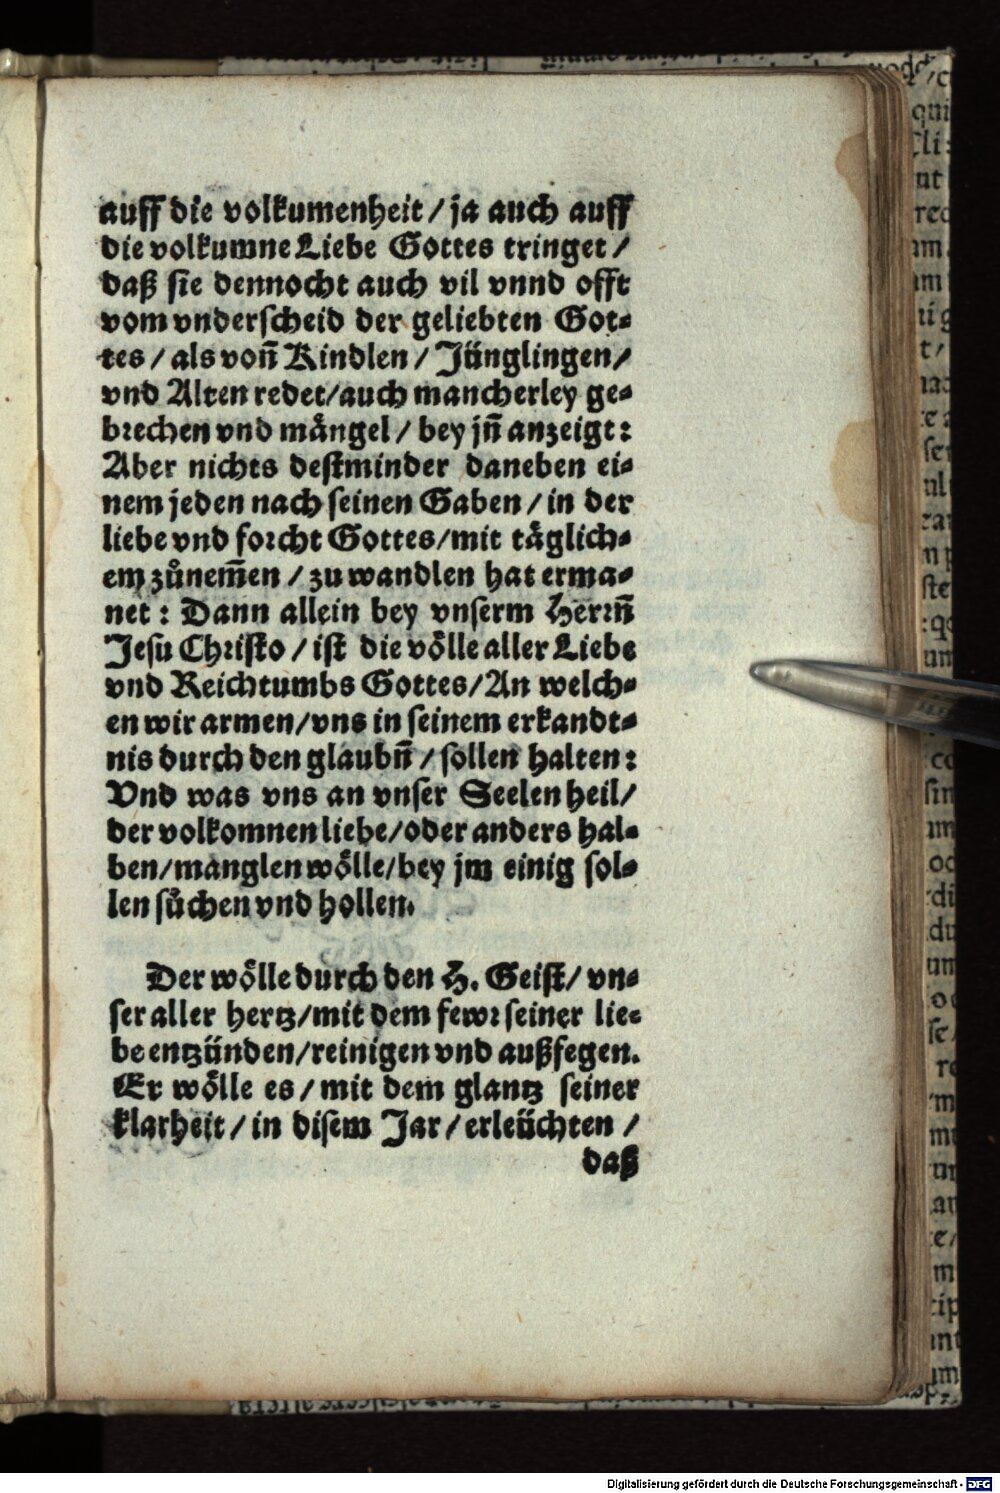 auff die volkumenheit / ja auch auff
die volkumne Liebe Gottes tringet /
daß sie dennocht auch vil vnnd offt
vom vnderscheid der geliebten Got⸗
tes / als von̄ Kindlen / Jünglingen /
vnd Alten redet / auch mancherley ge⸗
brechen vnd mångel / bey jn̄ anzeigt:
Aber nichts destminder daneben ei⸗
nem jeden nach seinen Gaben / in der
liebe vnd forcht Gottes / mit täglich⸗
em zůnem̄en / zu wandlen hat erma⸗
net: Dann allein bey vnserm Herrn̄
Jesu Christo / ist die völle aller Liebe
vnd Reichtumbs Gottes / An welch⸗
en wir armen / vns in seinem erkandt⸗
nis durch den glaubn̄ / sollen halten:
Vnd was vns an vnser Seelen heil /
der volkomnen liebe / oder anders hal⸗
ben / manglen wölle / bey jm einig sol⸗
len sůchen vnd hollen.
Der wölle durch den H. Geist / vn⸗
ser aller hertz / mit dem fewr seiner lie⸗
be entzünden / reinigen vnd außfegen.
Er wölle es / mit dem glantz seiner
klarheit / in disem Jar / erleüchten /
daß
Digitalisierung gefördert durch die Deutsche Forschungsgemeinschaft - DFG